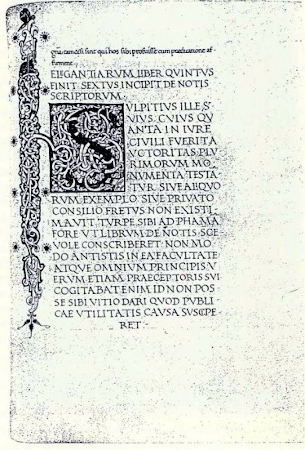 gratiam essent qui hos sibi profuisse cum praedicatione af
firment.
ELEGANTIARUM LIBER QUINTUS
FINIT SEXTUS INCIPIT DE NOTIS
SCRIPTORUM
SULPITIUS ILLE, S
VIUS CVIUS QU
ANTA IN IURE
CIVILI FUERIT A
VCTORITAS PLV
RIMORUM MO
NUMENTA TESTA
TUR SIVE ALIQUO
RUM EXEMPLO SIVE PRIVATO
CONSILIO FRETUS NON EXISTI
MAVIT TURPE SIBI AD PHAMA
FORE UT LIBRUM DE NOTIS SCE
VOLE CONSCRIBERET NON MO
DO ANTISTIS IN EA FACULTATE
ATQUE OMNIUM PRINCIPIS V
ERUM ETIAM PRAECEPTORIS SVI
COGITABAT ENIM ID NON POS
SE SIBI VITIO DARI QUOD PUBLI
CAE UTILITATIS CAUSA SUSCIPE
RET